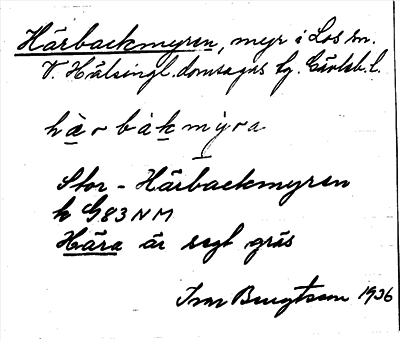 Härbackmyren, myr i Los sn.
V. Hälsingl. domsagas tg. Gävleb. l.
hàrbákmỳra
Stor-Härbackmyren
k G83NM
Hära är segt gräs
Ivar Bengtsson 1936